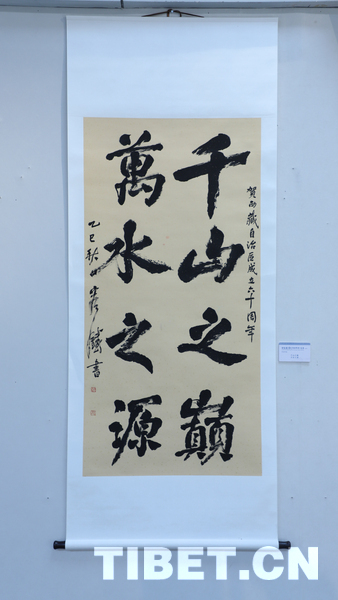 賀西藏自治區成立六十周年
千山之巔
萬水之源
乙巳秋
書
TIBET.CN